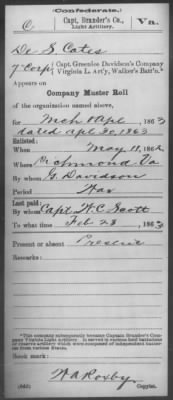 (Confederate.)
C
Capt. Brander's Co., Light Artillery.
Va.
De S. Cates
7 Corp'l, Capt. Greenlee Davidson's Company
Virginia L. Art'y, Walker's Batt'n.*
Appears on
Company Muster Roll
of the organization named above,
for Mch & Apl, 1863
dated Apl 30, 1863
Enlisted:
When May 11, 1862
Where Richmond Va
By whom G. Davidson
Period War
Last paid:
By whom Capt. W. C. Scott
To what time Feb 28, 1863
Present or absent Present
Remarks:
*This company subsequently became Captain Brander's Company Virginia Light Artillery. It served in various field battalions or reserve artillery which were composed of independent batteries from various States.
Book mark:
W A Roxby
(642) Copyist.